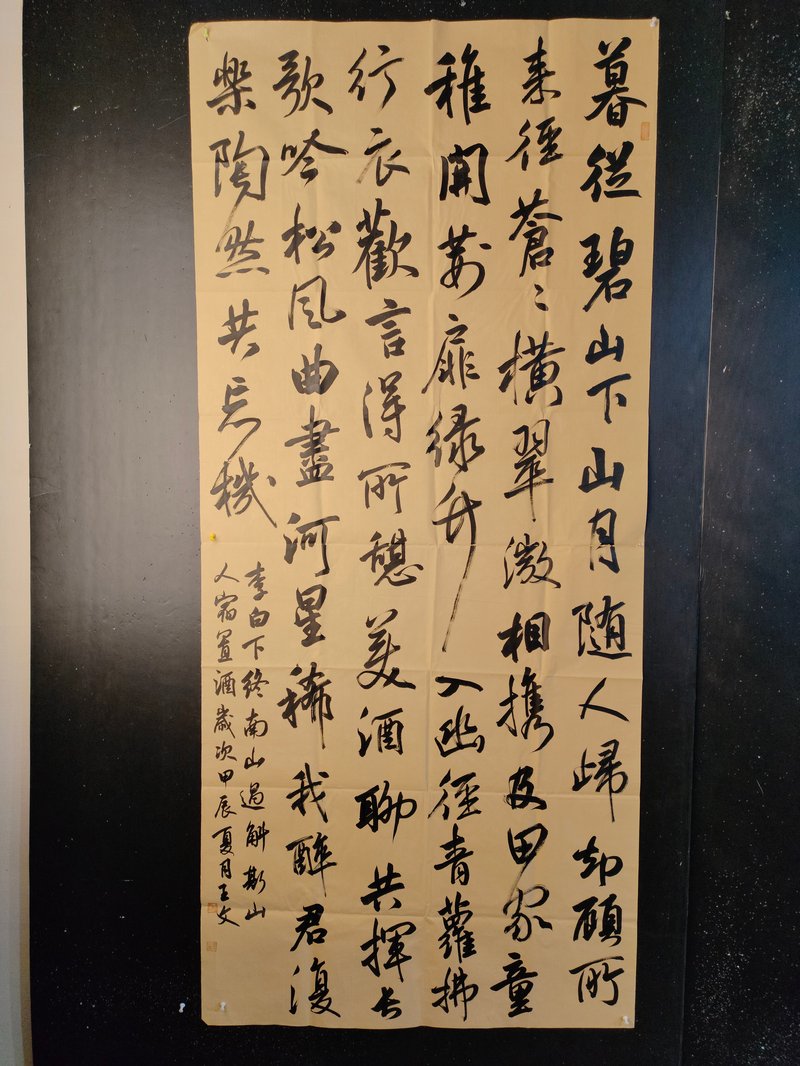 暮從碧山下山月随人歸却顧所
来徑蒼〻橫翠微相携及田家童
稚開荊扉绿竹入幽徑青蘿拂
行衣歡言得所憩美酒聊共揮长
歌吟松风曲盡河星稀我醉君復
樂陶然共忘機
李白下终南山過斛斯山
人宿置酒歲次甲辰夏月王文